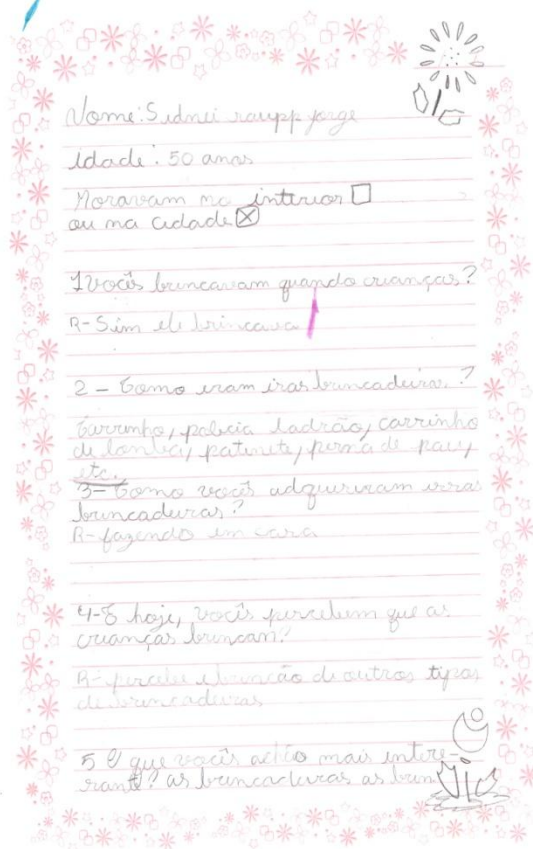 Nome: Sidnei raupp jorge
idade: 50 anos
Moravam no interior
ou na cidade X
1 vocês brincavam quando crianças?
R- Sim ele brincava
2 - Como eram esas brincadeiras?
Carrinho, policia ladrão, carrinho
de lomba, patinete, perna de pau,
etc.
3- Como vocês adquiriram esras
brincadeiras?
R- fazendo em casa
4-E hoje, vocês percebem que as
crianças brincam?
R- percebe e brincão de outros tipos
de brincadeiras
5 O que vocês achão mais intere-
sante? as brincadeiras as brin